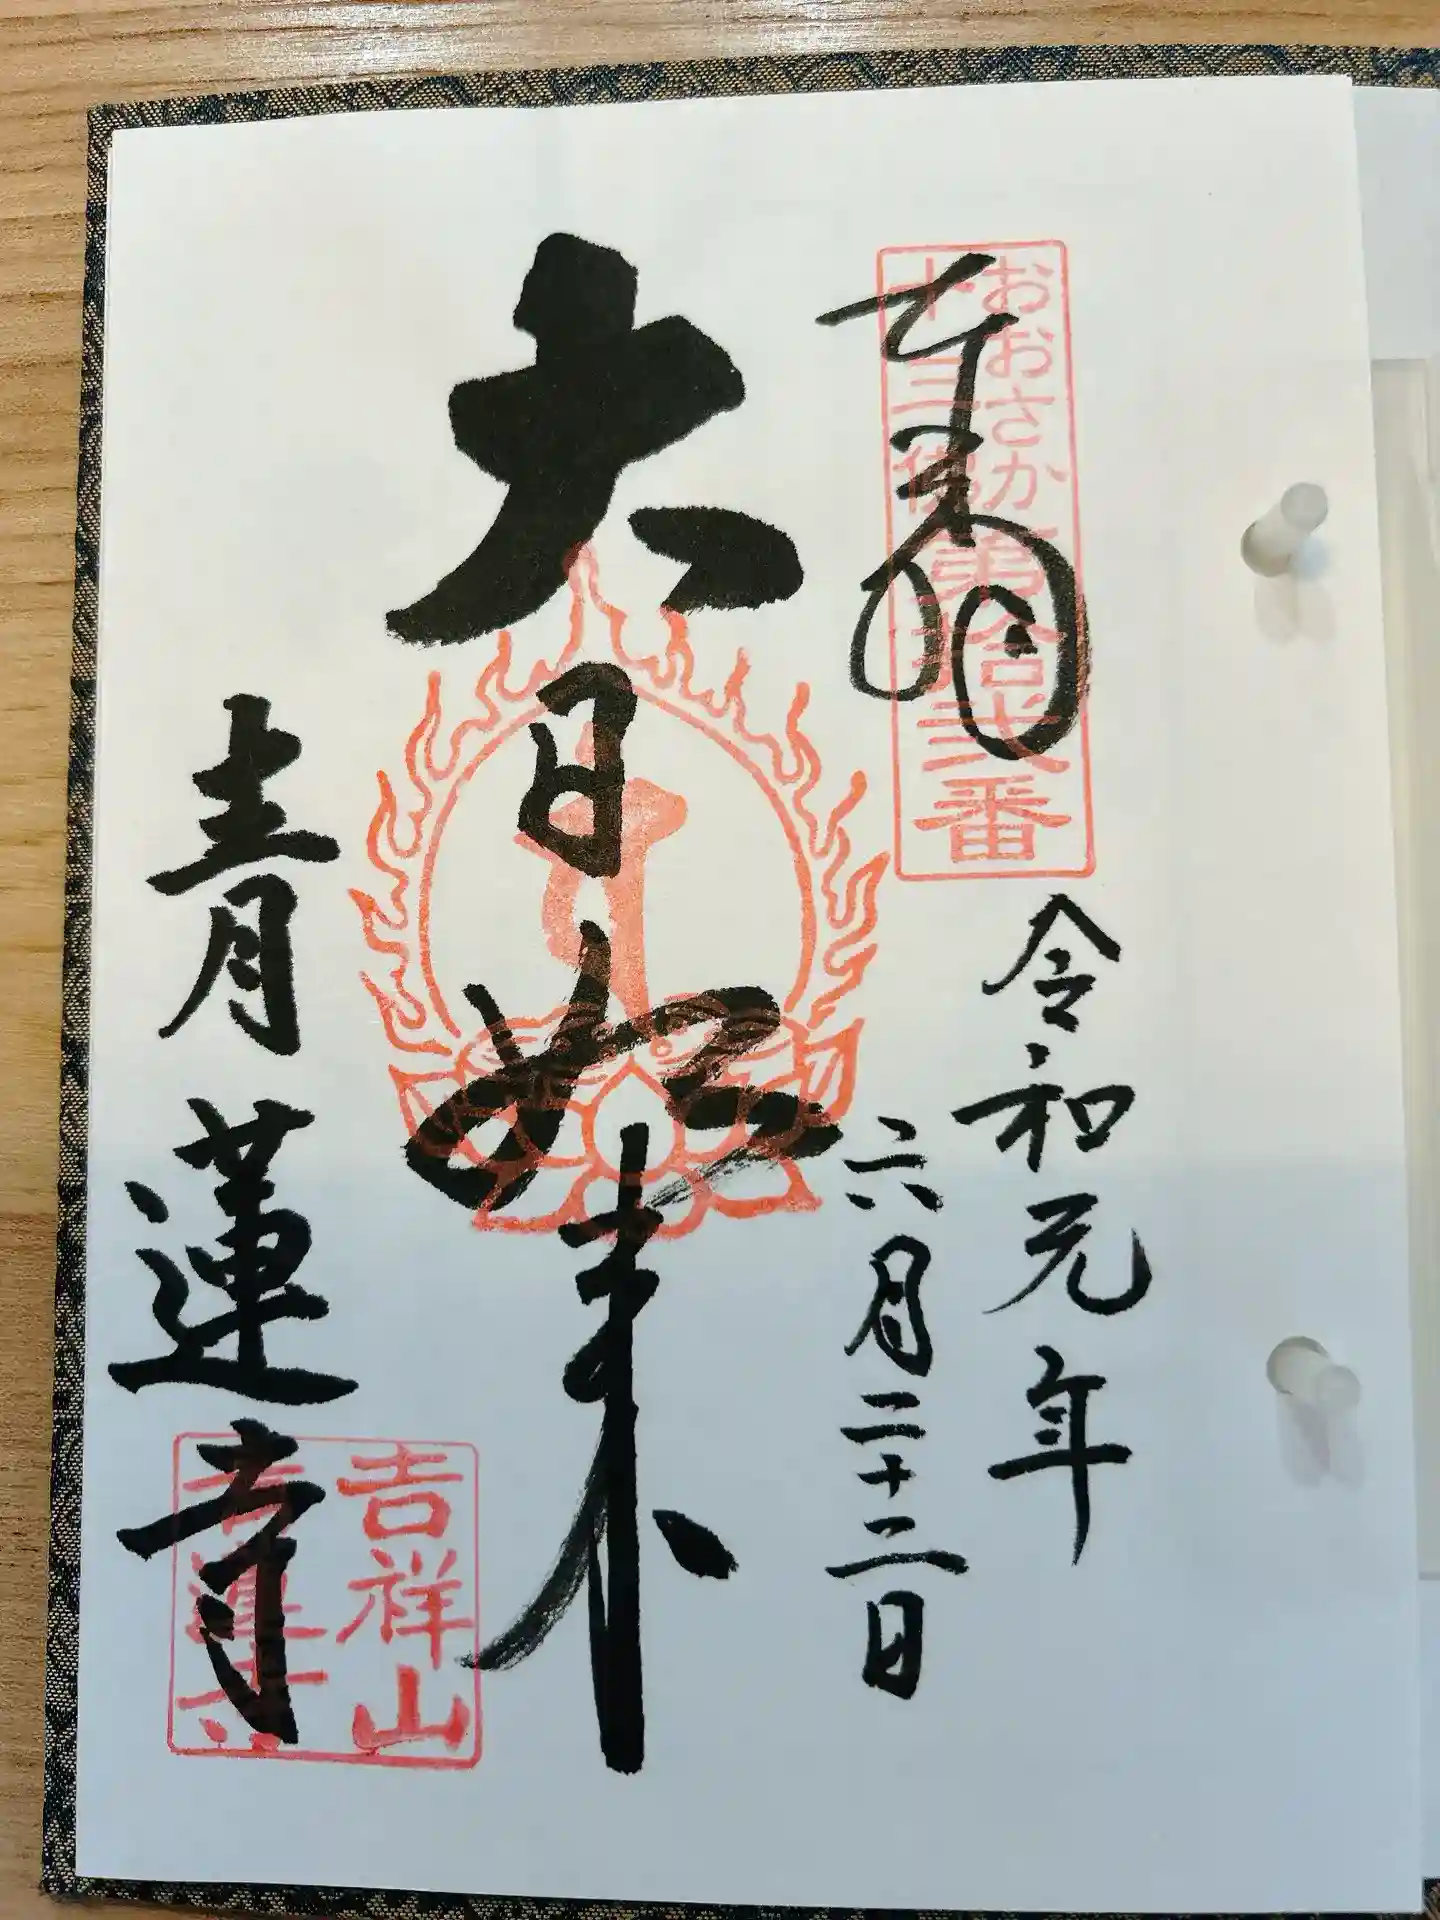 奉拝
おおさか
十三佛第拾弐番
令和元年
六月二十二日
大日如来
青蓮寺
吉祥山
青蓮寺